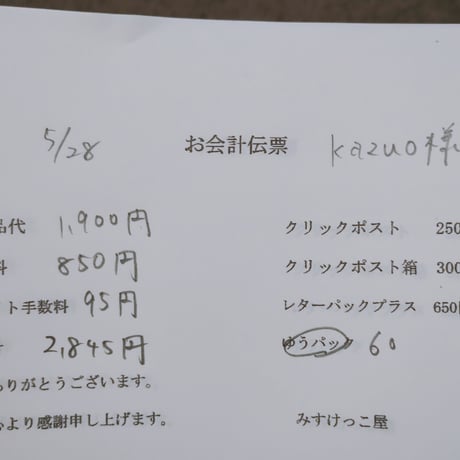 5/28 お会計伝票 kazuo様
品代 1,900円 クリックポスト 250
料 850円 クリックポスト箱 300
ト手数料 95円 レターパックプラス 650円
2,845円 ゆうパック 60
りがとうございます。
より感謝申し上げます。 みすけっこ屋